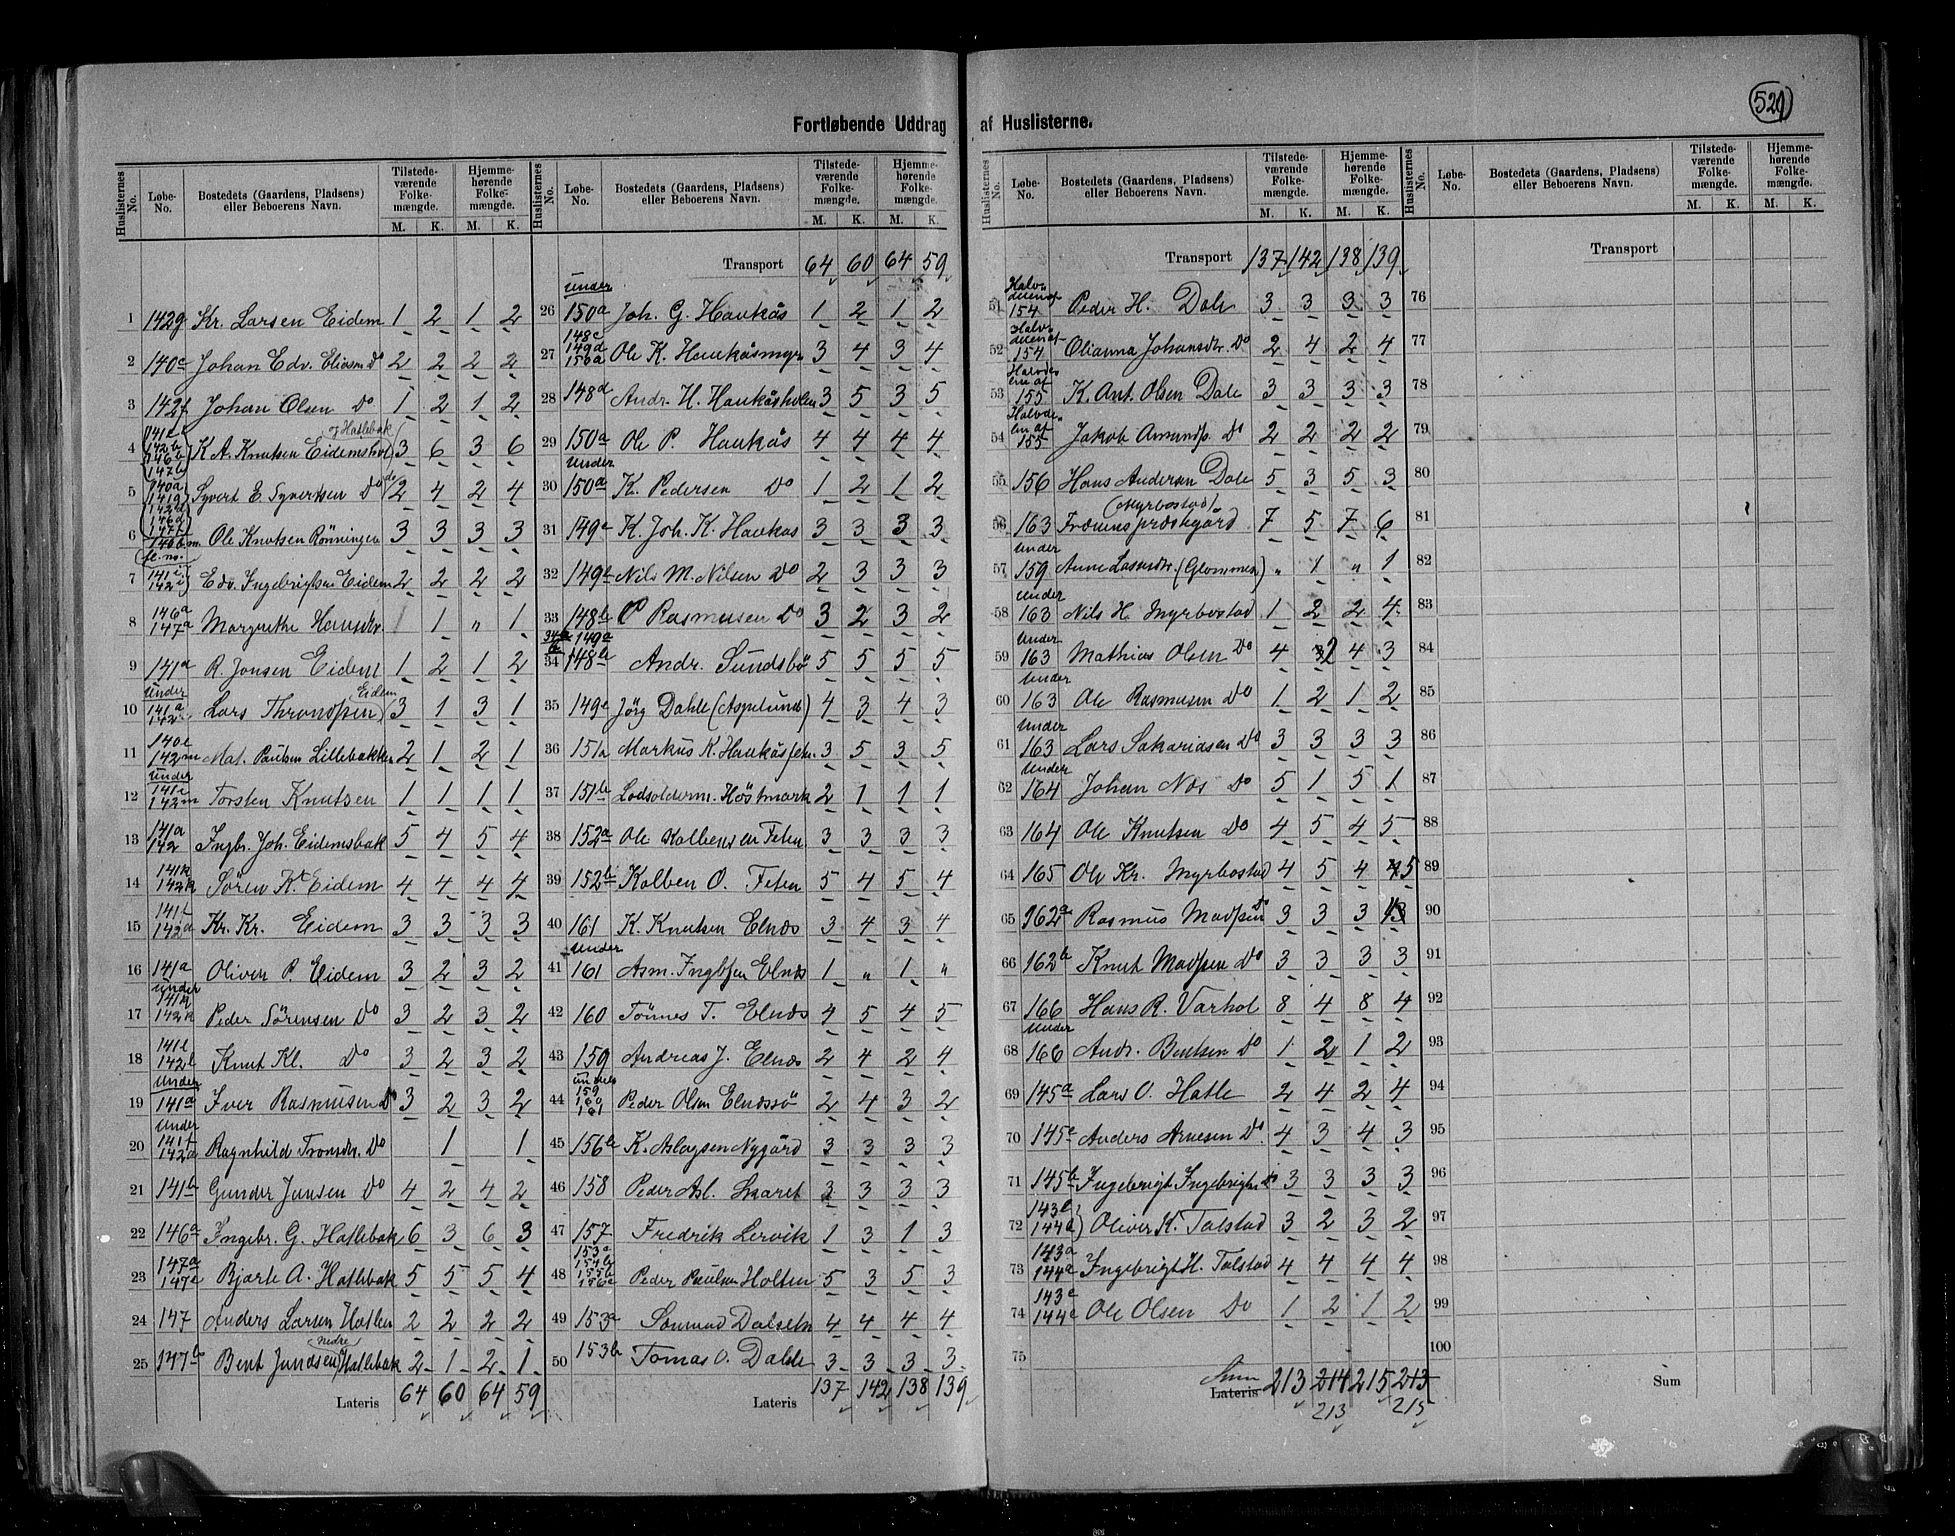 529
Fortløbende Uddrag af Huslisterne.
Huslisternes No. Løbe-No. Bostedets (Gaardens, Pladsens) eller Beboerens Navn. Tilstedeværende Folkemængde. M. K. Hjemmehørende Folkemængde. M. K.
1 142g Kr. Larsen Eidem 1 2 1 2
2 140c Johan Edv. Eliasen Do 2 2 2 2
3 142f Johan Olsen Do 1 2 1 2
4 K. A. Knutsen Eidemshol og Hatlebak 3 6 3 6
5 Syvert E. Syvertsen Do 2 4 2 4
6 Ole Knutsen Rönningen 3 3 3 3
7 141i 142i Edv. Ingebrigtsen Eidem 2 2 2 2
8 146a 147a Margrethe Hansdr. 1 " 1
9 141a R. Jonsen Eidem 1 2 1 2
10 under 141a 142 Lars Throndsen Eidem 3 1 3 1
11 140e 142m Mat. Paulsen Lillebakken 2 1 2 1
12 under 141e 142m Torsten Knutsen 1 1 1 1
13 141a 142 Ingbr. Joh. Eidemsbak 5 4 5 4
14 141k 142k Sören K. Eidem 4 4 4 4
15 141f 142d Kr. Kr. Eidem 3 3 3 3
16 141a Oliver P. Eidem 3 2 3 2
17 under 141k 142k Peder Sörensen Do 3 2 3 2
18 141l 142l Knut Kl. Do 3 2 3 2
19 under 141a Iver Rasmusen Do 3 2 3 2
20 under 141f 142d Ragnhild Tronsdr. Do 1 1
21 141b Gunder Jensen Do 4 2 4 2
22 146a Ingebr. G. Hatlebak 6 3 6 3
23 147a 147c Bjarte A. Hatlebak 5 5 5 4
24 147 Anders Larsen Hatlen 2 2 2 2
25 147b Bent Jundsen (nedre) Hatlebak 2 1 2 1
Lateris 64 60 64 59
Huslisternes No. Løbe-No. Bostedets (Gaardens, Pladsens) eller Beboerens Navn. Tilstedeværende Folkemængde. M. K. Hjemmehørende Folkemængde. M. K.
Transport 64 60 64 59
26 under 150a Joh. G. Haukås 1 2 1 2
27 148c 149d 150a Ole K. Haukåsmyr 3 4 3 4
28 148d Andr. H. Haukåsholen 3 5 3 5
29 150a Ole P. Haukås 4 4 4 4
30 under 150a K. Pedersen Do 1 2 1 2
31 149c K. Joh. K. Haukas 3 3 3 3
32 149b Nils M. Nilsen Do 2 3 3 3
33 148b P Rasmusen Do 3 2 3 2
34 149a 148b Andr. Sundsbö 5 5 5 5
35 149e Jörg Dahle (Aspelund) 4 3 4 3
36 151a Markus K. Haukåsfetn. 3 5 3 5
37 151b Lodsolderm. Höstmark 2 1 1 1
38 152a Ole Kolbensen Feten 3 3 3 3
39 152b Kolben O. Feten 5 4 5 4
40 161 K. Knutsen Elnæs 3 4 3 4
41 under 161 Asm. Ingbsen Elnæs 1 " 1 "
42 160 Tönnes T. Elnæs 4 5 4 5
43 159 Andreas J. Elnæs 2 4 2 4
44 under 159 160 161 Peder Olsen Elnæssö 2 4 3 2
45 156b K. Aslagsen Nygård 3 3 3 3
46 158 Peder Asl. Skaret 3 3 3 3
47 157 Fredrik Lervik 1 3 1 3
48 153c 154b 155b 156c Peder Paulsen Holten 5 3 5 3
49 153a Sönmund Dalsetn 4 4 4 4
50 153b Tomas O. Dahle 3 3 3 3
Lateris 137 142 138 139
Huslisternes No. Løbe-No. Bostedets (Gaardens, Pladsens) eller Beboerens Navn. Tilstedeværende Folkemængde. M. K. Hjemmehørende Folkemængde. M. K.
Transport 137 142 138 139
51 Halvdelen af 154 Peder H. Dale 3 3 3 3
52 Halvdelen af 154 Olianna Johansdr. Do 2 4 2 4
53 Halvdelen af 155 K. Ant. Olsen Dale 3 3 3 3
54 Halvdelen af 155 Jakob Amunds. Do 2 2 2 2
55 156 Hans Andersen Dale 5 3 5 3
56 163 (Myrbostad) Frænens præstegård 7 5 7 6
57 under 159 Anne Lassesdr. (Glommen) " 1 " 1
58 under 163 Nils H. Myrbostad 1 2 2 4
59 under 163 Mathias Olsen Do 4 2 4 3
60 under 163 Ole Rasmusen Do 1 2 1 2
61 under 163 Lars Sakariasen Do 3 3 3 3
62 under 164 Johan Nos Do 5 1 5 1
63 164 Ole Knutsen Do 4 5 4 5
64 165 Ole Kr. Myrbostad 4 5 4 5
65 162a Rasmus Madsen Do 3 3 3 3
66 162b Knut Madsen Do 3 3 3 3
67 166 Hans R. Varhol 8 4 8 4
68 under 166 Andr. Bentsen Do 1 2 1 2
69 145a Lars O. Hatle 2 4 2 4
70 145c Anders Arnesen Do. 4 3 4 3
71 145b Ingebrigt Ingebrigts. Do 3 3 3 3
72 143b 144d Oliver K. Talstad 3 2 3 2
73 143a 144a Ingebrigt H. Talstad 4 4 4 4
74 143c 144c Ole Olsen Do 1 2 1 2
75
Sum Lateris 213 214 215 213
213 215
Huslisternes No. Løbe-No. Bostedets (Gaardens, Pladsens) eller Beboerens Navn. Tilstedeværende Folkemængde. M. K. Hjemmehørende Folkemængde. M. K.
Transport
76
77
78
79
80
81
82
83
84
85
86
87
88
89
90
91
92
93
94
95
96
97
98
99
100
Sum